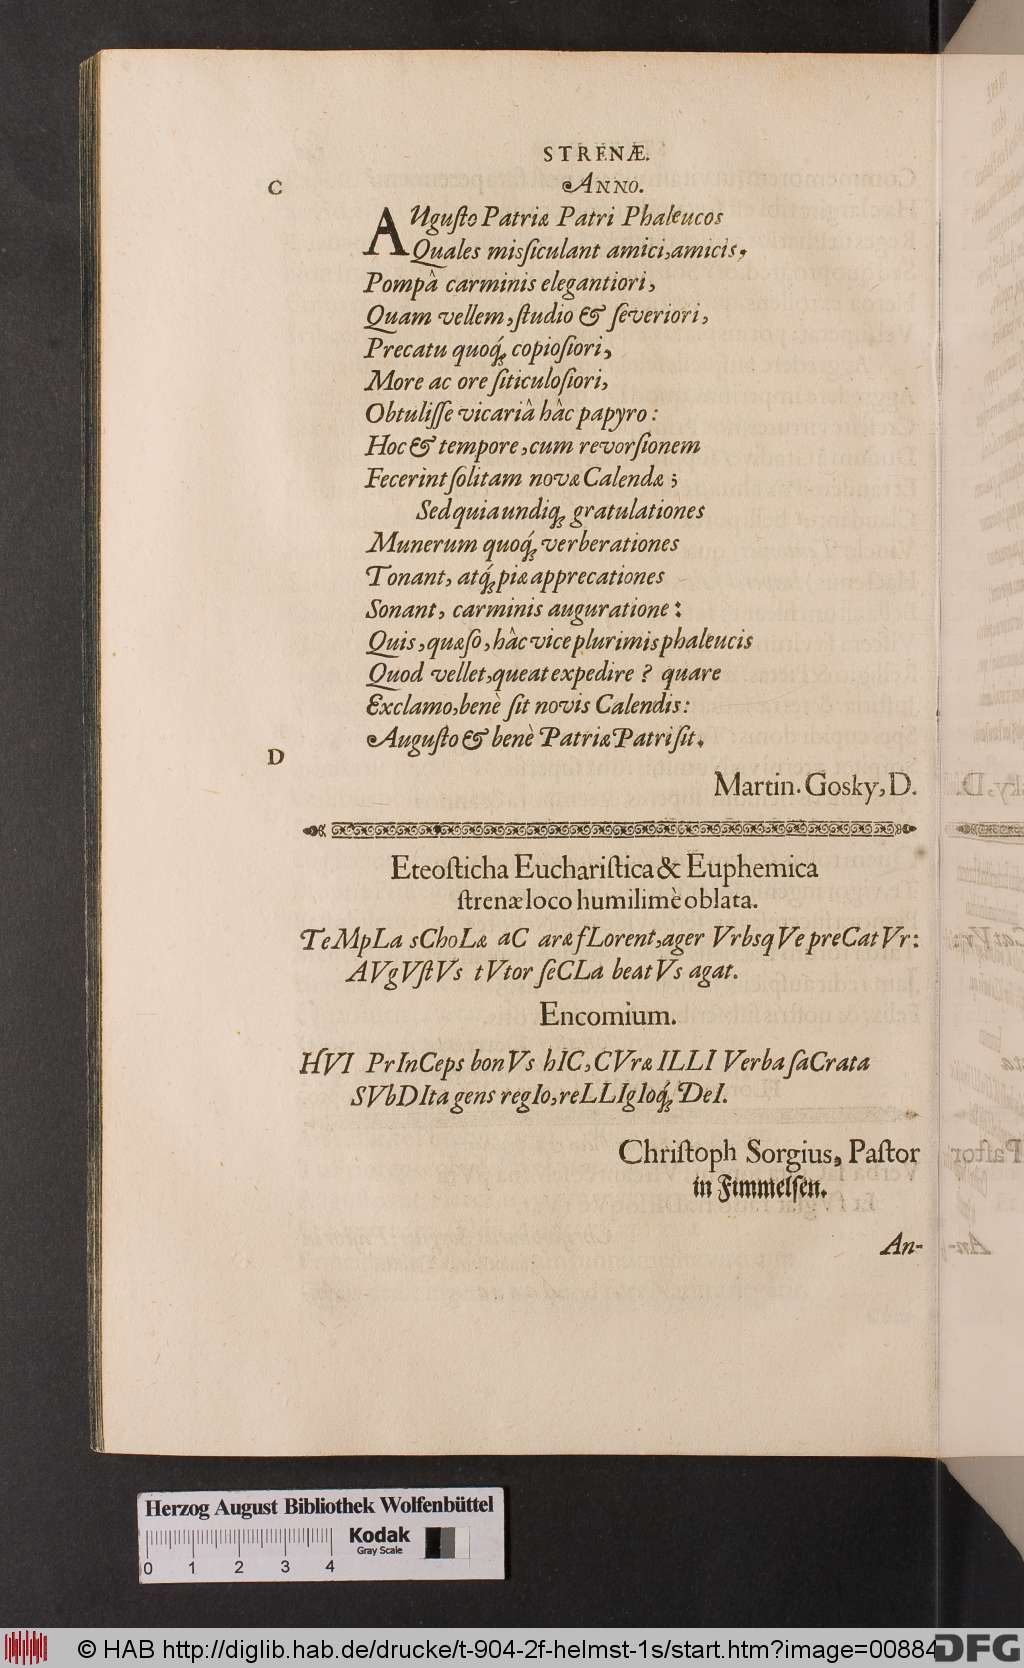 STRENÆ.
C
ANNO.
AUguſto Patriæ Patri Phaleucos
Quales misſiculant amici, amicis,
Pompâ carminis elegantiori,
Quam vellem, ſtudio & ſeveriori,
Precatu quoq́; copioſiori,
More ac ore ſiticuloſiori,
Obtuliſſe vicariâ hâc papyro:
Hoc & tempore, cum revorſionem
Fecerint ſolitam novæ Calendæ;
Sed quia undiq; gratulationes
Munerum quoq́; verberationes
Tonant, atq́; piæ apprecationes
Sonant, carminis auguratione:
Quis, quæſo, hâc vice plurimis phaleucis
Quod vellet, queat expedire? quare
Exclamo, benè ſit novis Calendis:
Auguſto & benè Patriæ Patri ſit.
D
Martin. Gosky, D.
Eteoſticha Euchariſtica & Euphemica
ſtrenæ loco humilimè oblata.
TeMpLa sChoLæ aC aræ fLorent, ager VrbsqVe preCatVr:
AVgVſtVs tVtor ſeCLa beatVs agat.
Encomium.
HVI PrInCeps bonVs hIC, CVræ ILLI Verba ſaCrata
SVbDIta gens regIo, reLLIgIoq́; DeI.
Chriſtoph Sorgius, Paſtor
in Jimmelſen.
An-
Herzog August Bibliothek Wolfenbüttel
0 1 2 3 4
Kodak
Gray Scale
© HAB http://diglib.hab.de/drucke/t-904-2f-helmst-1s/start.htm?image=00884
DFG